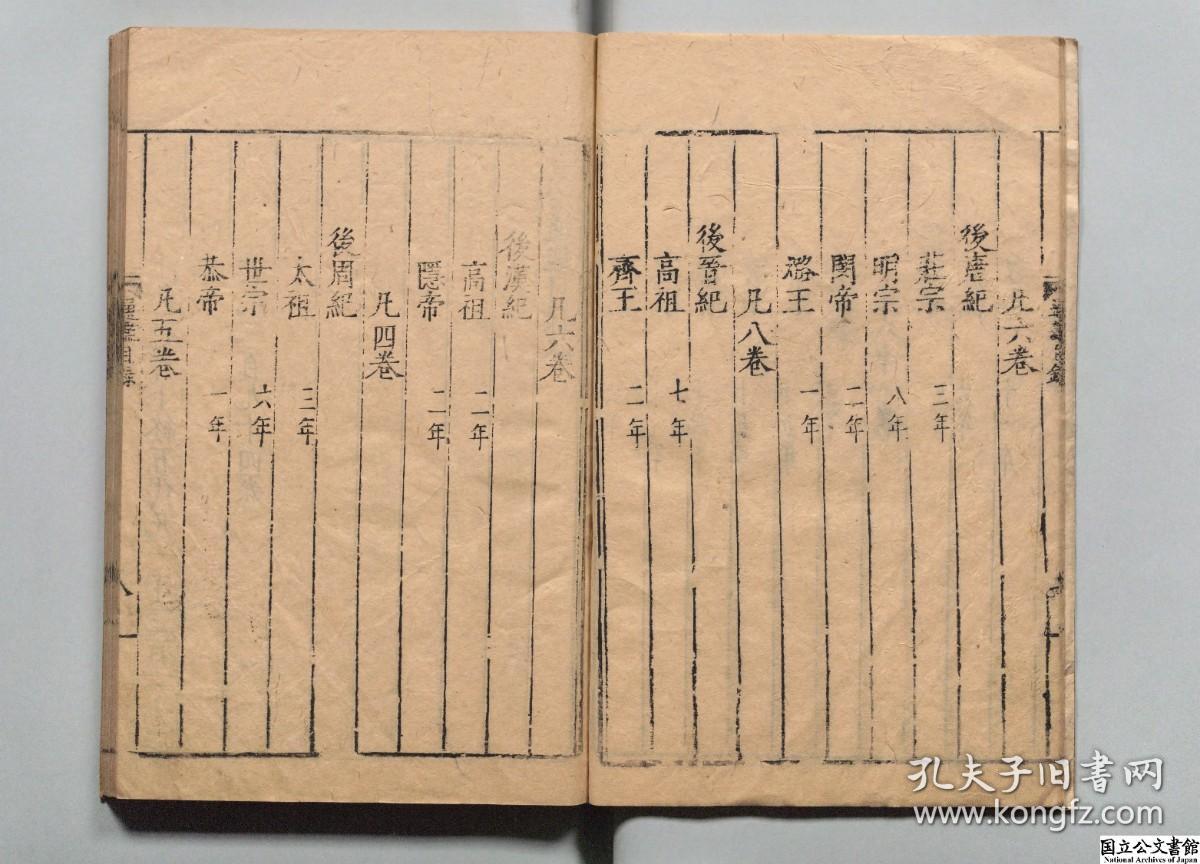 凡六卷
後唐紀
莊宗 三年
明宗 八年
閔帝 二年
潞王 一年
凡八卷
後晉紀
高祖 七年
齊王 二年
凡六卷
後漢紀
高祖 二年
隱帝 二年
凡四卷
後周紀
太祖 三年
世宗 六年
恭帝 一年
凡五卷
通鑑目錄
八
孔夫子旧书网
www.kongfz.com
国立公文書館
National Archives of Japan